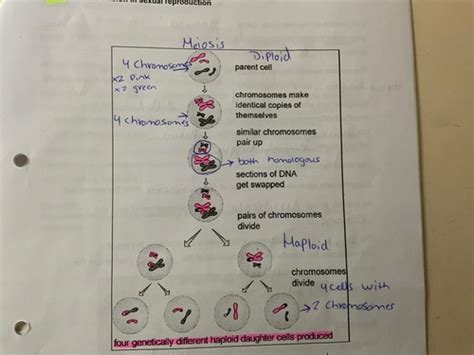 in sexual reproduction
Meiosis
Diploid
4 Chromosomes
x2 pink
x2 green
parent cell
chromosomes make
identical copies of
themselves
4 Chromosomes
similar chromosomes
pair up
both homologous
sections of DNA
get swapped
pairs of chromosomes
divide
Maploid
chromosomes
divide
4 cells with
2 Chromosomes
four genetically different haploid daughter cells produced